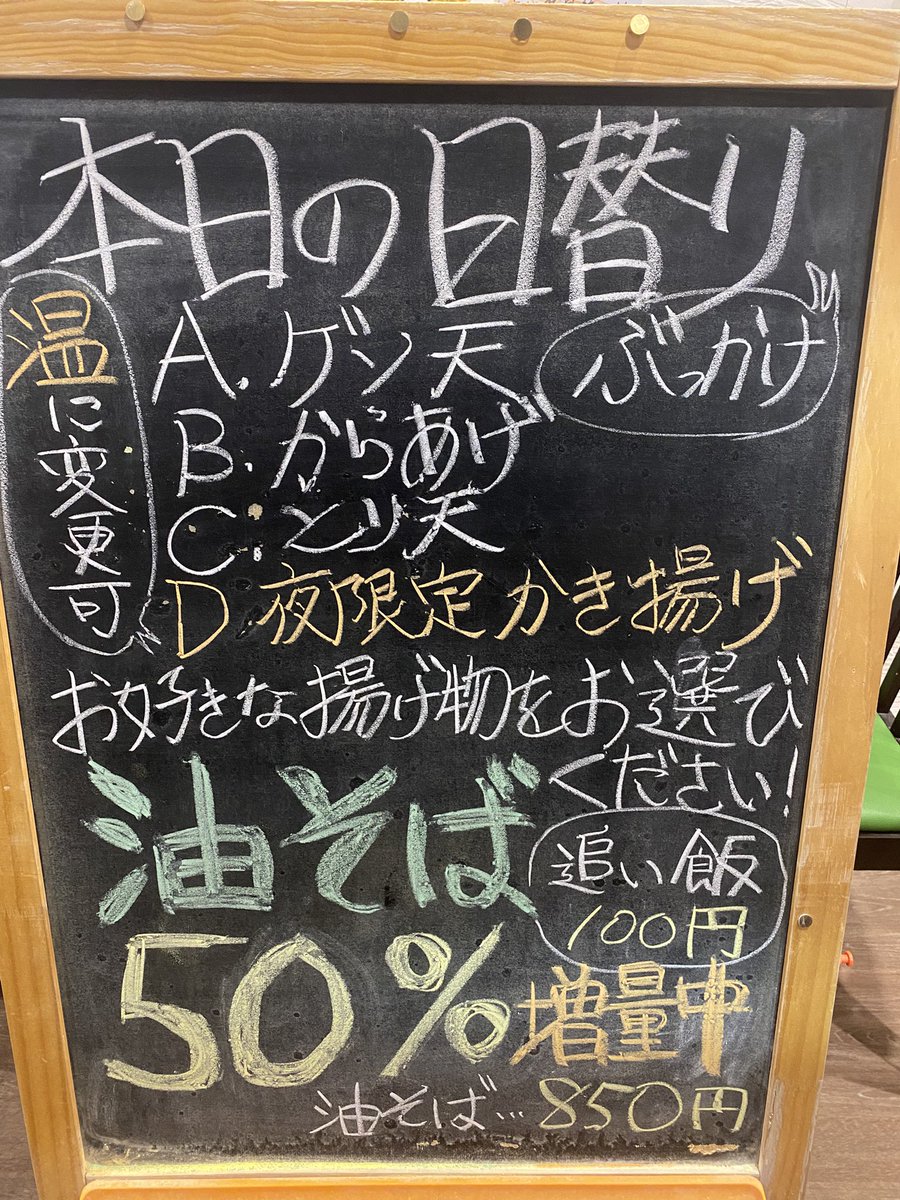 本日の日替り
ぶっかけ
温に変更可
A.ゲソ天
B.からあげ
C.とり天
D.夜限定かき揚げ
お好きな揚げ物をお選び
ください!
油そば
追い飯
100円
50%増量中
油そば…850円